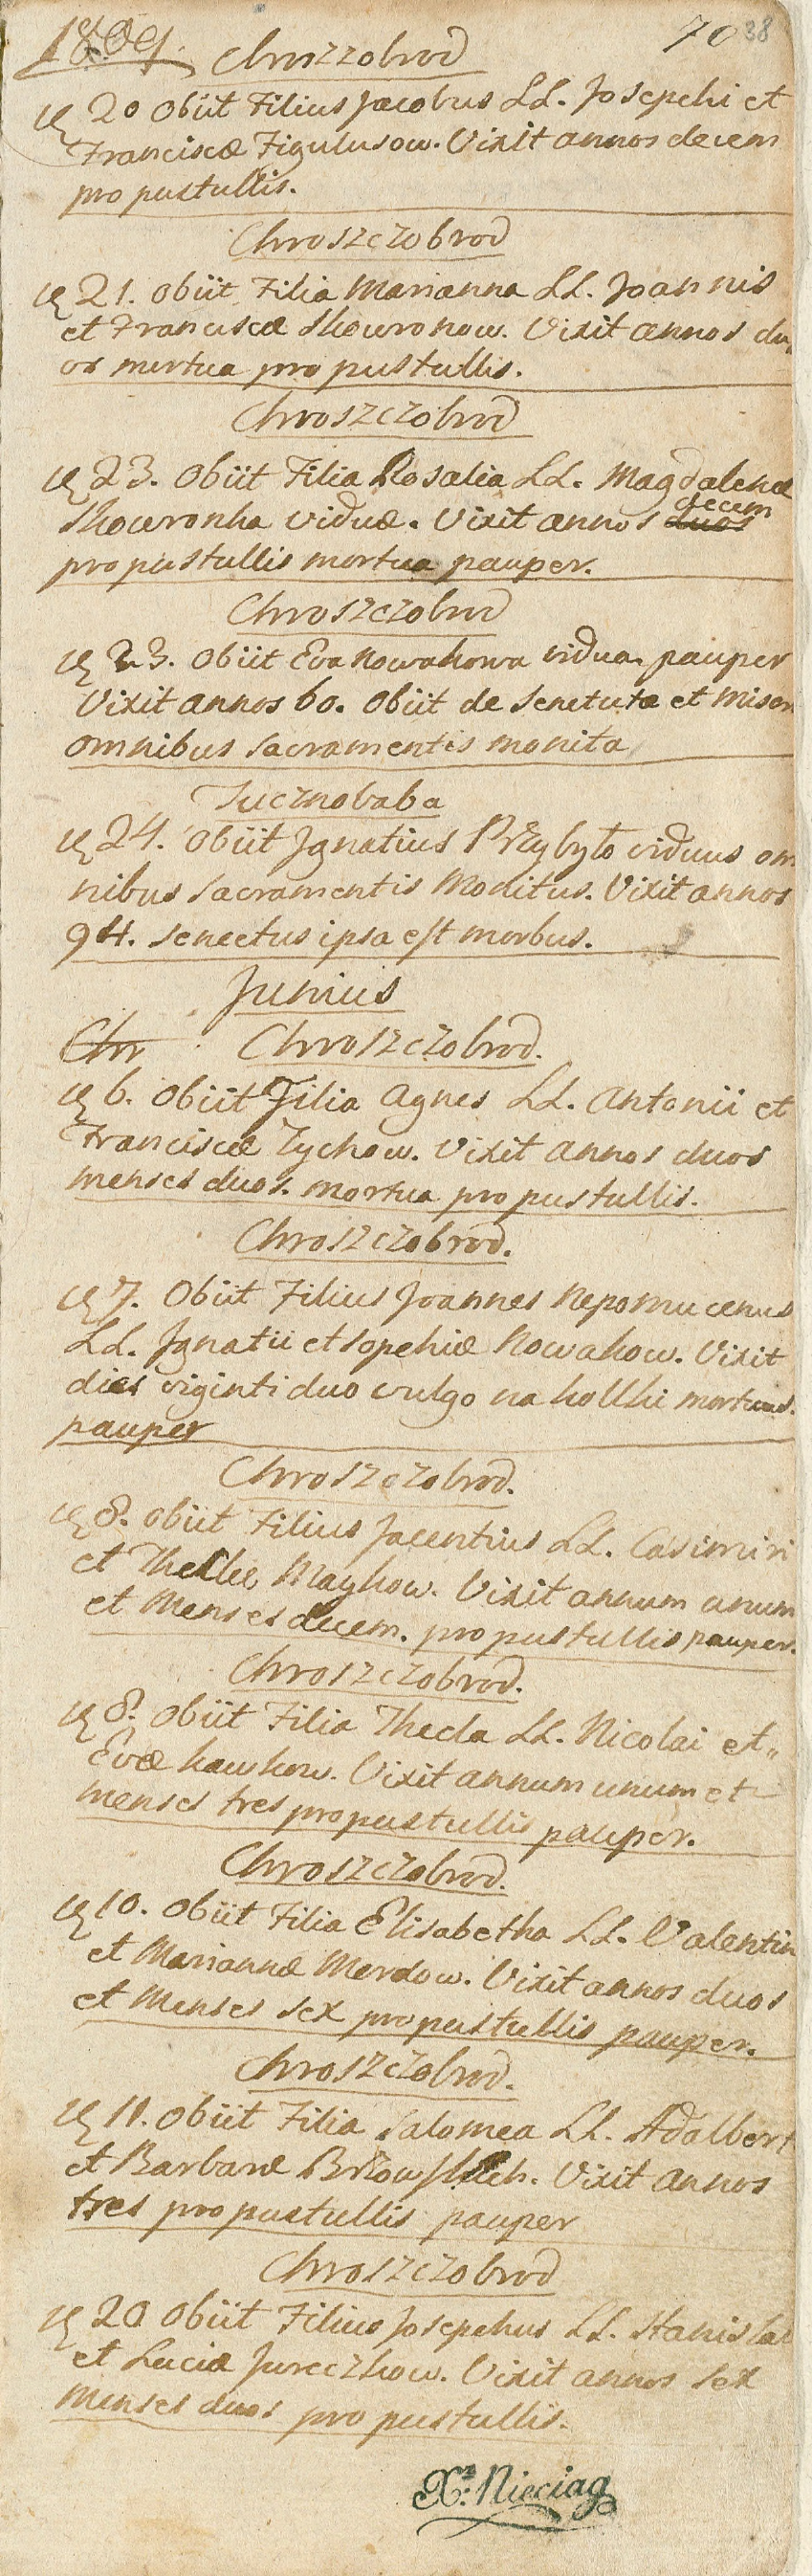 1809. Chrszzobrod 70 38
20 Obiit Filius Jacobus LL. Josephi et
Franciscæ Figulusow. Vixit annos decem
pro pustullis.
Chroszczobrod
21. Obiit Filia Marianna LL. Joannis
et Franciscæ Skowronow. Vixit annos du
os mertua pro pustullis.
Chroszczobrod
23. Obiit Filia Rosalia LL. Magdalenæ
Skowronka viduæ. Vixit annos duos decem
pro pustullis mortua pauper.
Chroszczobrod
23. Obiit Eva Nowakowa vidua, pauper
Vixit annos 60. Obiit de Senetute et Miser
omnibus Sacramentis monita
Tucznobaba
24. Obiit Ignatius Przybyło viduus om
nibus Sacramentis Moditus. Vixit annos
94. Senectus ipsa est morbus.
Junius
Chr Chroszczobrod.
6. Obiit Filia Agnes LL. Antonii et
Franciscæ Zychow. Vixit annos duos
menses duos. mortua pro pustullis.
Chroszczobrod.
7. Obiit Filius Joannes Nepomucenus
LL. Ignatii et Sopehiæ Nowakow. Vixit
dies viginti duo vulgo na kolki mortuus.
pauper
Chroszczobrod.
8. Obiit Filius Jacentius LL. Casimiri
et Maykow. Vixit annum unum
et Menses decem. pro pustullis pauper.
Chroszczobrod.
8. Obiit Filia Thecla LL. Nicolai et
Evæ kawkow. Vixit annum unum et
menses tres pro pustullis pauper.
Chroszczobrod.
10. Obiit Filia Elisabetha LL. Valentin
et Mariannæ Merdow. Vixit annos duos
et Menses Sex pro pustullis pauper.
Chroszczobrod.
11. Obiit Filia Salomea LL. Adalbert
et Barbaræ Vixit annos
tres pro pustullis pauper
Chroszczobrod
20 Obiit Filius Josephus LL. Stanislai
et Luciæ Jureczkow. Vixit annos Sex
Menses duos pro pustullis.
X: Nieciąg